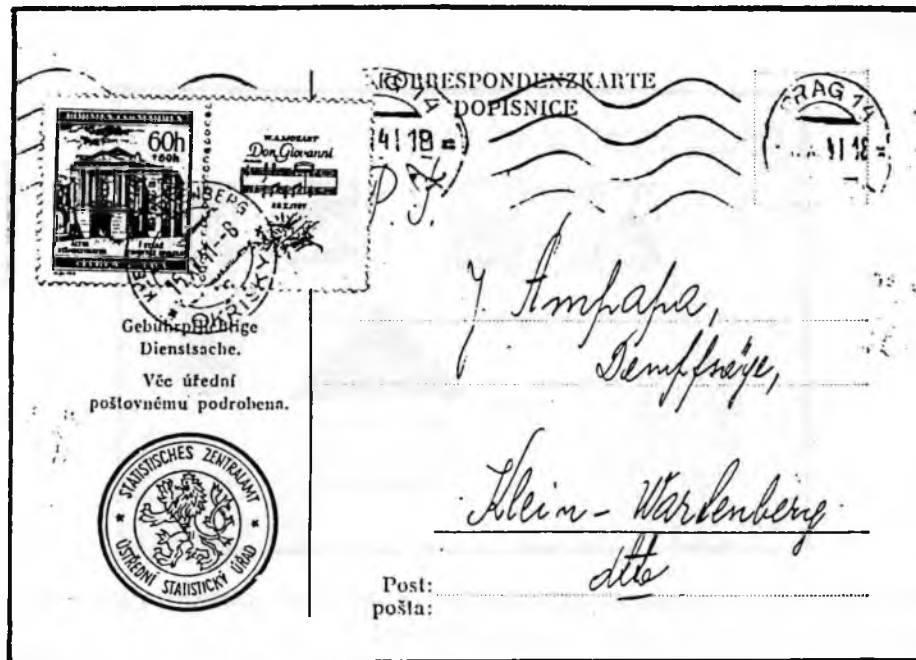 KORRESPONDENZKARTE
DOPISNICE
PRAG 14
41 18
PRAG 14
41 18
60h
+60h
W.A.MOZART
Don Giovanni
Gebührpflichtige
Dienstsache.
Věc úřední
poštovnému podrobena.
STATISTISCHES ZENTRALAMT
ÚSTŘEDNÍ STATISTICKÝ ÚŘAD
J. Ampapa,
Dampfsäge,
Klein-Wartenberg
dtto
Post:
pošta: